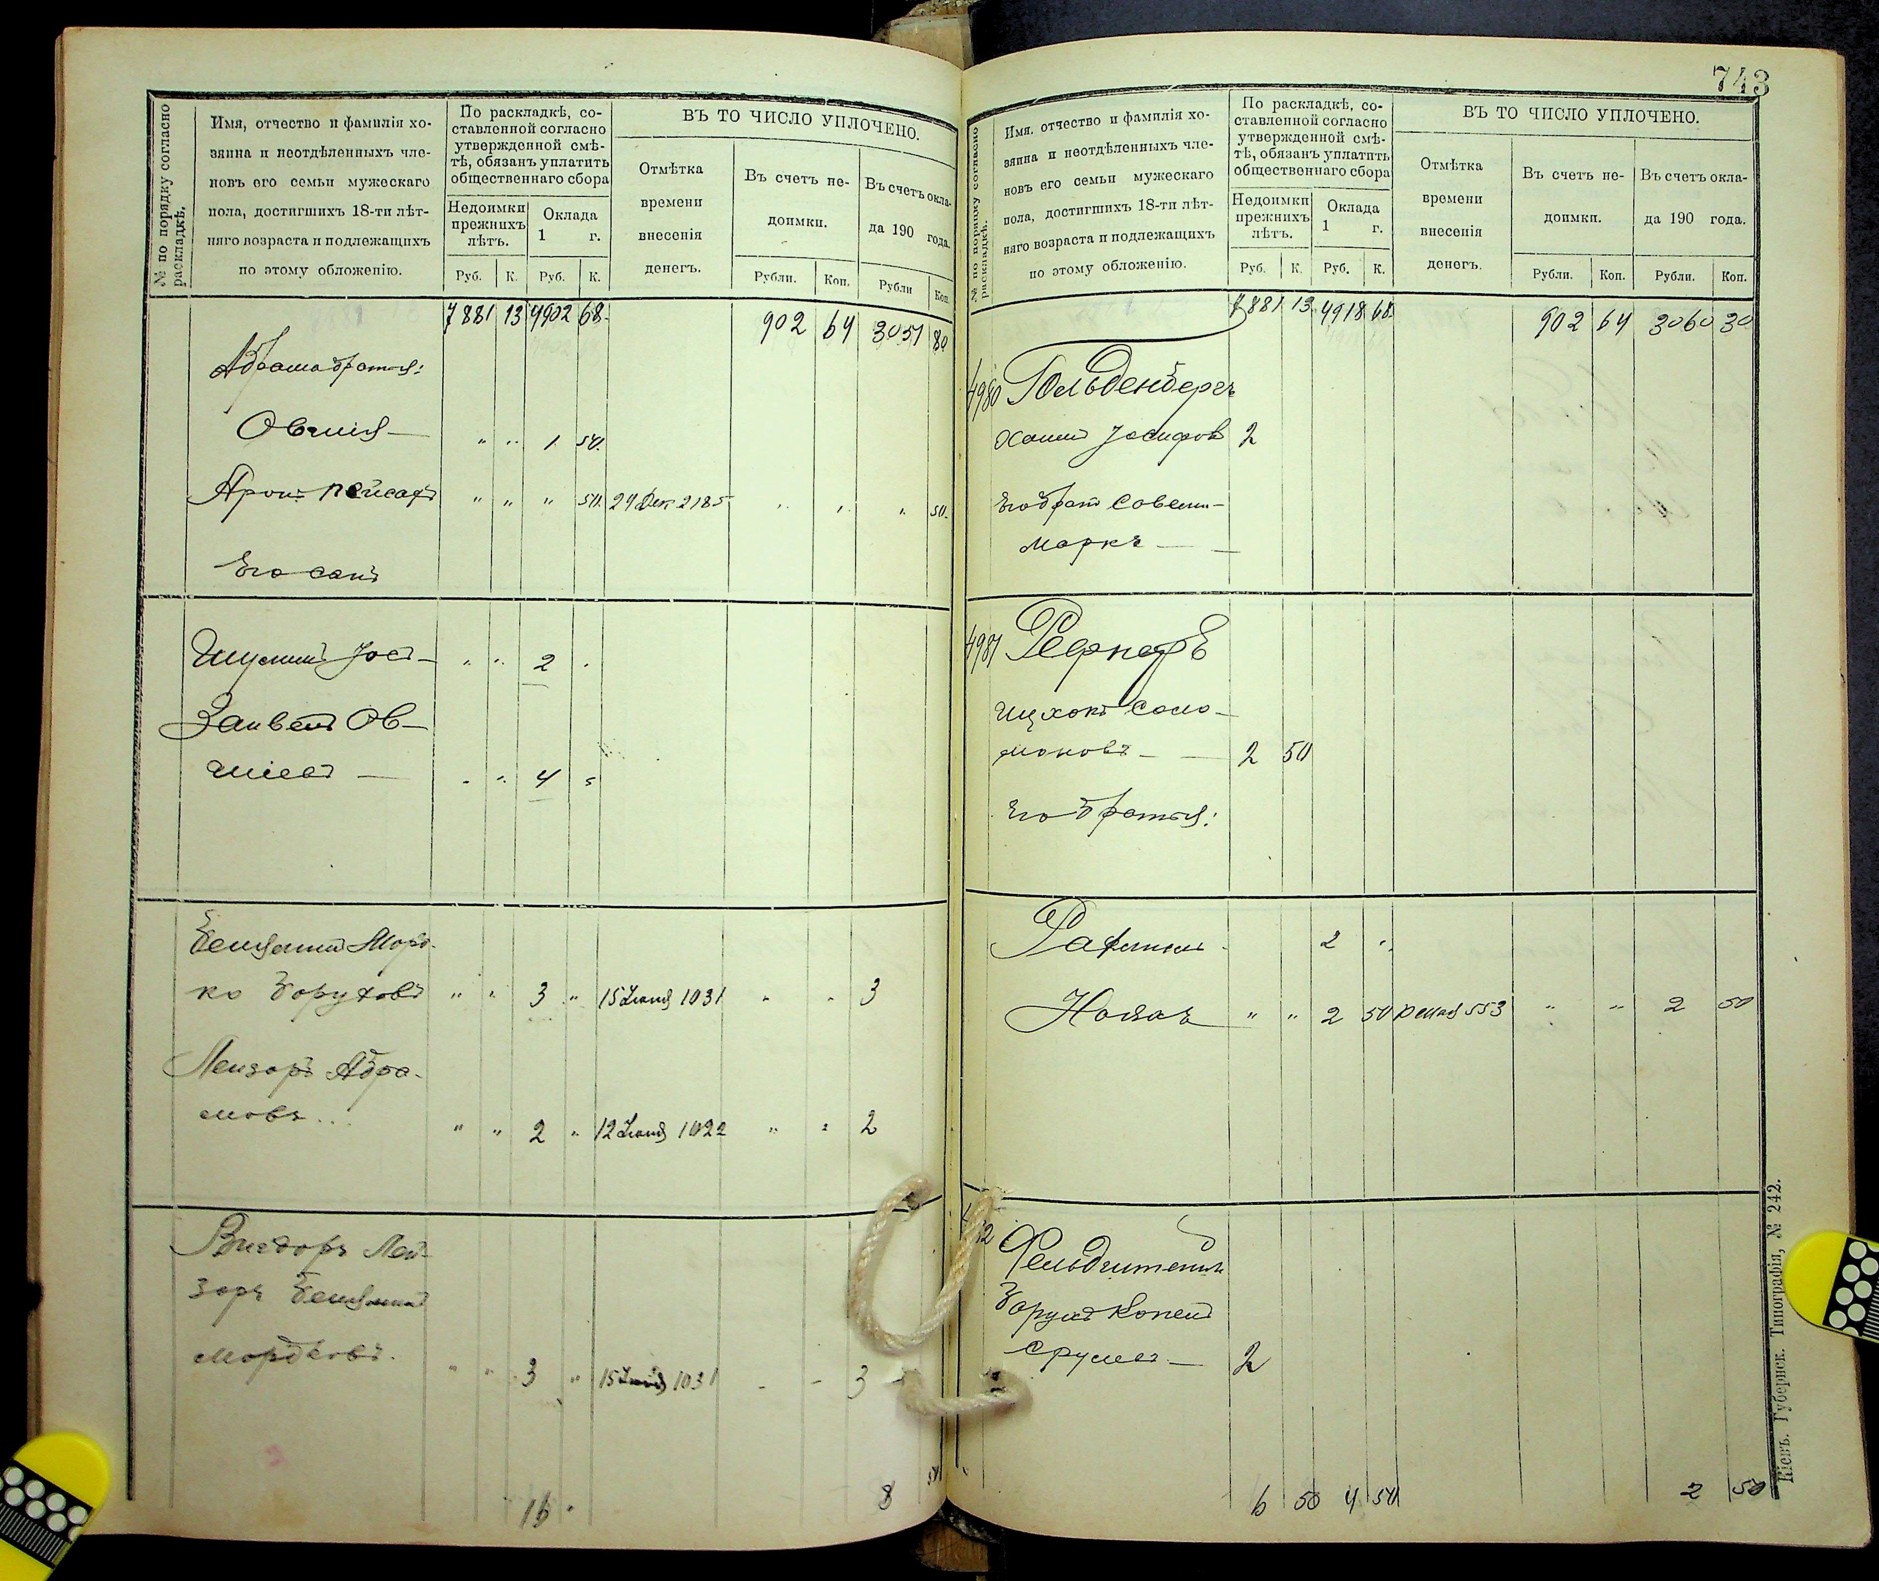 № по порядку согласно раскладкѣ.
Имя, отчество и фамилія хо-
зяина и неотдѣленныхъ чле-
новъ его семьи мужескаго
пола, достигшихъ 18-ти лѣт-
няго возраста и подлежащихъ
по этому обложенію.
По раскладкѣ, со-
ставленной согласно
утвержденной смѣ-
тѣ, обязанъ уплатить
общественнаго сбора
Недоимки
прежнихъ
лѣтъ.
Оклада
1 г.
Руб. К. Руб. К.
ВЪ ТО ЧИСЛО УПЛОЧЕНО.
Отмѣтка
времени
внесенія
денегъ.
Въ счетъ не-
доимки.
Рубли. Коп.
Въ счетъ окла-
да 190 года.
Рубли Коп.
7881 13 4902 68. 902 64 3051 80
Абрама братья:
Овшія — " " 1. 50.
Аронъ Пейсахъ " " " 50. 24 Дек 2185 " " " 50.
Его сынъ
Шулимъ Jос — " " 2 "
Зайвелъ Ов-
шіевъ — " " 4 "
Беньяминъ Мord-
ко Боруховъ " " 3 " 15 Іюня 1031 " " 3
Лейзоръ Абра-
мовъ... " " 2 " 12 Іюня 1022 " " 2
Вигдоръ Лей-
зоръ Беньямин
Мордковъ. " " 3 " 15 Іюня 1031 - - 3 -
16 . 8 50
743
№ по порядку согласно раскладкѣ.
Имя, отчество и фамилія хо-
зяина и неотдѣленныхъ чле-
новъ его семьи мужескаго
пола, достигшихъ 18-ти лѣт-
няго возраста и подлежащихъ
по этому обложенію.
По раскладкѣ, со-
ставленной согласно
утвержденной смѣ-
тѣ, обязанъ уплатить
общественнаго сбора
Недоимки
прежнихъ
лѣтъ.
Оклада
1 г.
Руб. К. Руб. К.
ВЪ ТО ЧИСЛО УПЛОЧЕНО.
Отмѣтка
времени
внесенія
денегъ.
Въ счетъ не-
доимки.
Рубли. Коп.
Въ счетъ окла-
да 190 года.
Рубли. Коп.
7881 13 4918 68. 902 64 3060 30
4980 Гольденбергъ
Хаимъ Jосифов 2
Его братъ
Маркъ —
4981
Ицхокъ Соло-
моновъ — 2 50
Его братья:
Рафаилъ 2 "
" " 2 50 553 " " 2 50
82
Борухъ
Сруловъ — 2
6 50 4 50 2 50
Кіевъ. Губернск. Типографія, № 242.